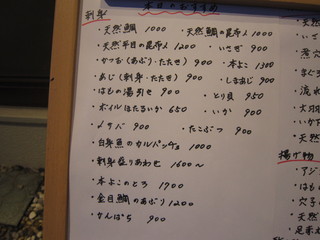 本日のおすすめ
刺身
・天然鯛 1000 ・天然鯛の昆布〆 1000
・天然平目の昆布〆 1200 ・いさぎ 900
・かつお(あぶり・たたき) 900 ・本よこ 1300
・あじ(刺身・たたき) 900 ・しまあじ 900
・はもの湯引き 900 ・とり貝 950
・ボイルほたるいか 650 ・いか 900
・〆サバ 900 ・たこぶつ 900
・白身魚のカルパッチョ 1000
・刺身盛りあわせ 1600〜
・本よこのとろ 1700
・金目鯛のあぶり 1200
・かんぱち 900
揚げ物
・アジ
・はも
・穴子
・天然